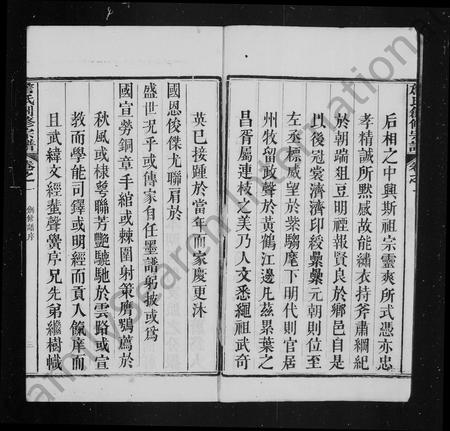 后相之中興斯祖宗靈爽所式憑亦忠
孝精誠所黙感故能繡衣持斧肅綱紀
於朝端俎豆明禋報賢良於鄉邑自是
門後冠裳濟濟印綬纍纍元朝則位至
左丞標威望於紫騮麾下明代則官居
州牧留政聲於黃鶴江邊凡茲累葉之
昌胥屬連枝之美乃人文悉繩祖武奇
英已接踵於當年而家慶更沐
國恩俊傑尤聯肩於
盛世況乎或傳家自任墨譜躬披或爲
國宣勞銅章手綰或棘圍射策膺鶚薦於
秋風或棣萼聯芳艷驍馳於雲路或宣
教而學能司鐸或明經而貢人籲庠而
且武緯文經蜚聲黌序兄先弟繼樹幟
詹氏創修宗譜
卷之一
創修譜序
二